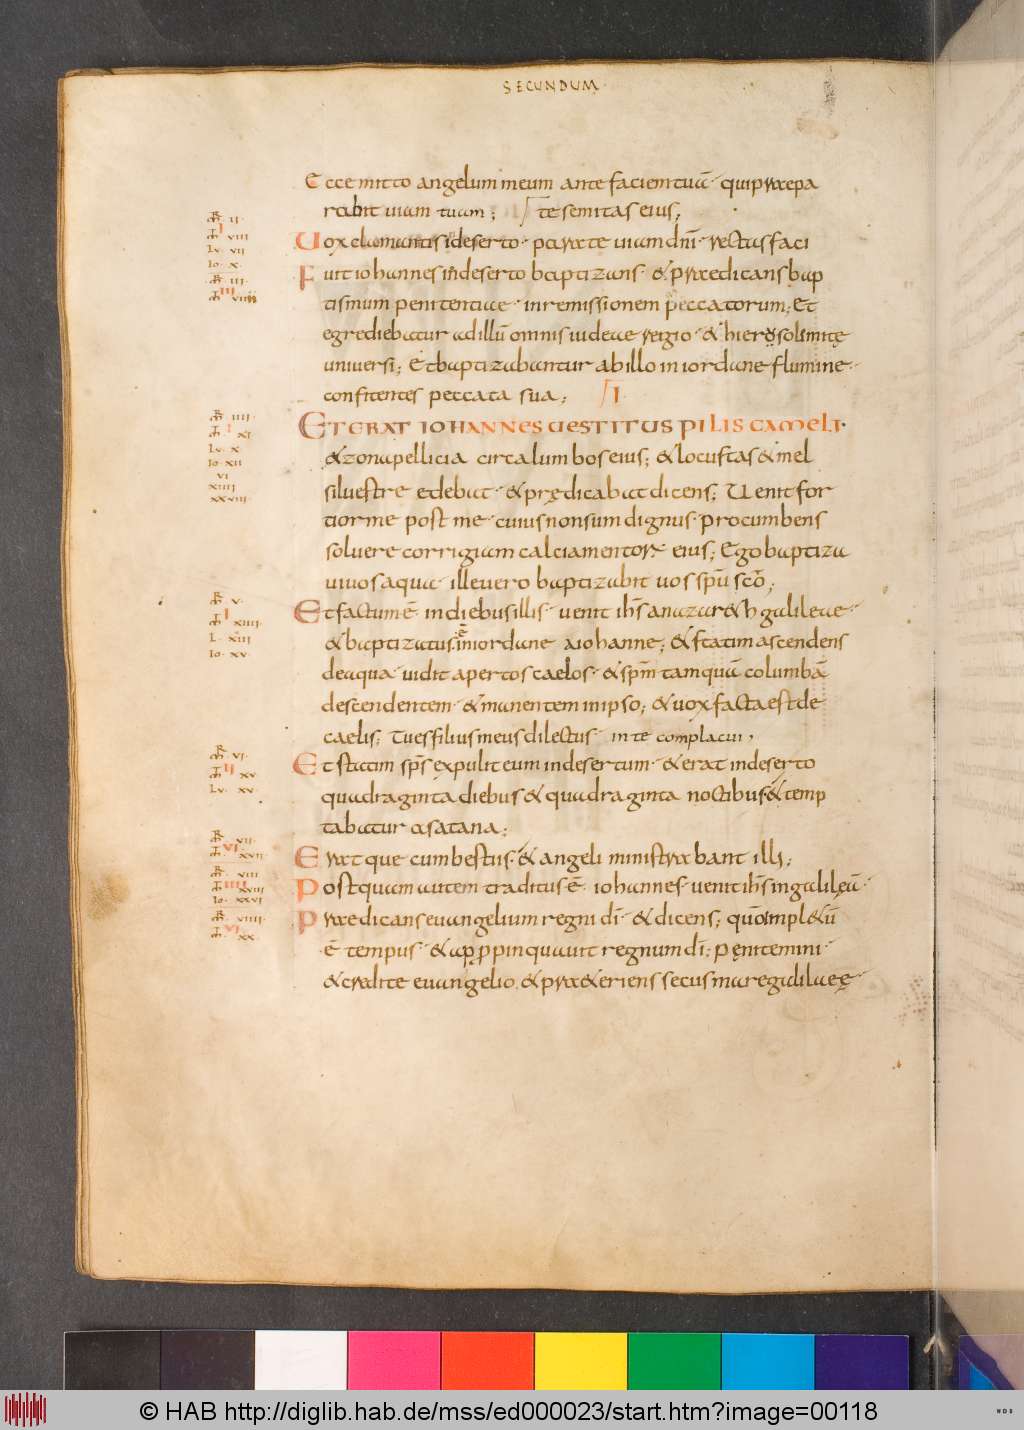 SECUNDUM
Ecce mitto angelum meum ante faciem tuā · qui praepa
rabit uiam tuam ; te semitas eius ;
Uox clamantis ideserto · parate uiam dn̄i · rectas faci
Fuit iohannes in deserto baptizans · & praedicans bap
tismum penitentiae · in remissionem peccatorum ; Et
egrediebatur ad illū omnis iudeae regio · & hierosolimitę
uniuersi ; Et baptizabantur ab illo in iordane flumine ·
confitentes peccata sua ; I ·
ETERAT IOHANNES UESTITUS PILIS CAMELI ·
& zona pellicia circa lumbos eius ; & locustas & mel
siluestre edebat · & prędicabat dicens ; Uenit for
tior me post me · cuius non sum dignus · procumbens
soluere corrigiam calciamentorum eius ; Ego baptiza
ui uos aqua · ille uero baptizabit uos spū scō ;
ĀR II ·
I
M̄ VIII
LV · VII
IO · X ·
ĀR · III ·
III
ĀR · IIII ·
I
M̄ · XI
LV · X ·
IO · XII
VI
XIIII
XXVIII ·
Et factum ē in diebus illis · uenit ih̄s a nazar&h galileae ·
& baptizatus ē in iordane a iohanne ; & statim ascendens
de aqua · uidit apertos caelos · & sp̄m tamquā columbā
descendentem · & manentem in ipso ; & uox facta est de
caelis ; Tu es filius meus dilectus · in te complacui ,
ĀR · V ·
I
M̄ · XIIII
L · XIII
IO · XV ·
Et statim sp̄s expulit eum in desertum · & erat in deserto
quadraginta diebus & quadraginta noctibus & temp
tabatur a satana ;
ĀR · VI ·
II
M̄ · XV
LV · XV ·
Erat que cum bestiis · & angeli ministrabant illi ;
ĀR · VII
VI
M̄ · XVII
Postquam autem traditus ē · iohannes · uenit ih̄s in galilęā ·
ĀR · VIII
IIII
M̄ · XVIII
IO · XXVI
Praedicans euangelium regni dī · & dicens ; quō impl&ū
ē tempus · & appropinquauit regnum dī ; Pęnitemini ·
& credite euangelio · & praeteriens secus mare galilaeę ·
ĀR · VIIII ·
VI
M̄ · XX ·
© HAB http://diglib.hab.de/mss/ed000023/start.htm?image=00118
WDB